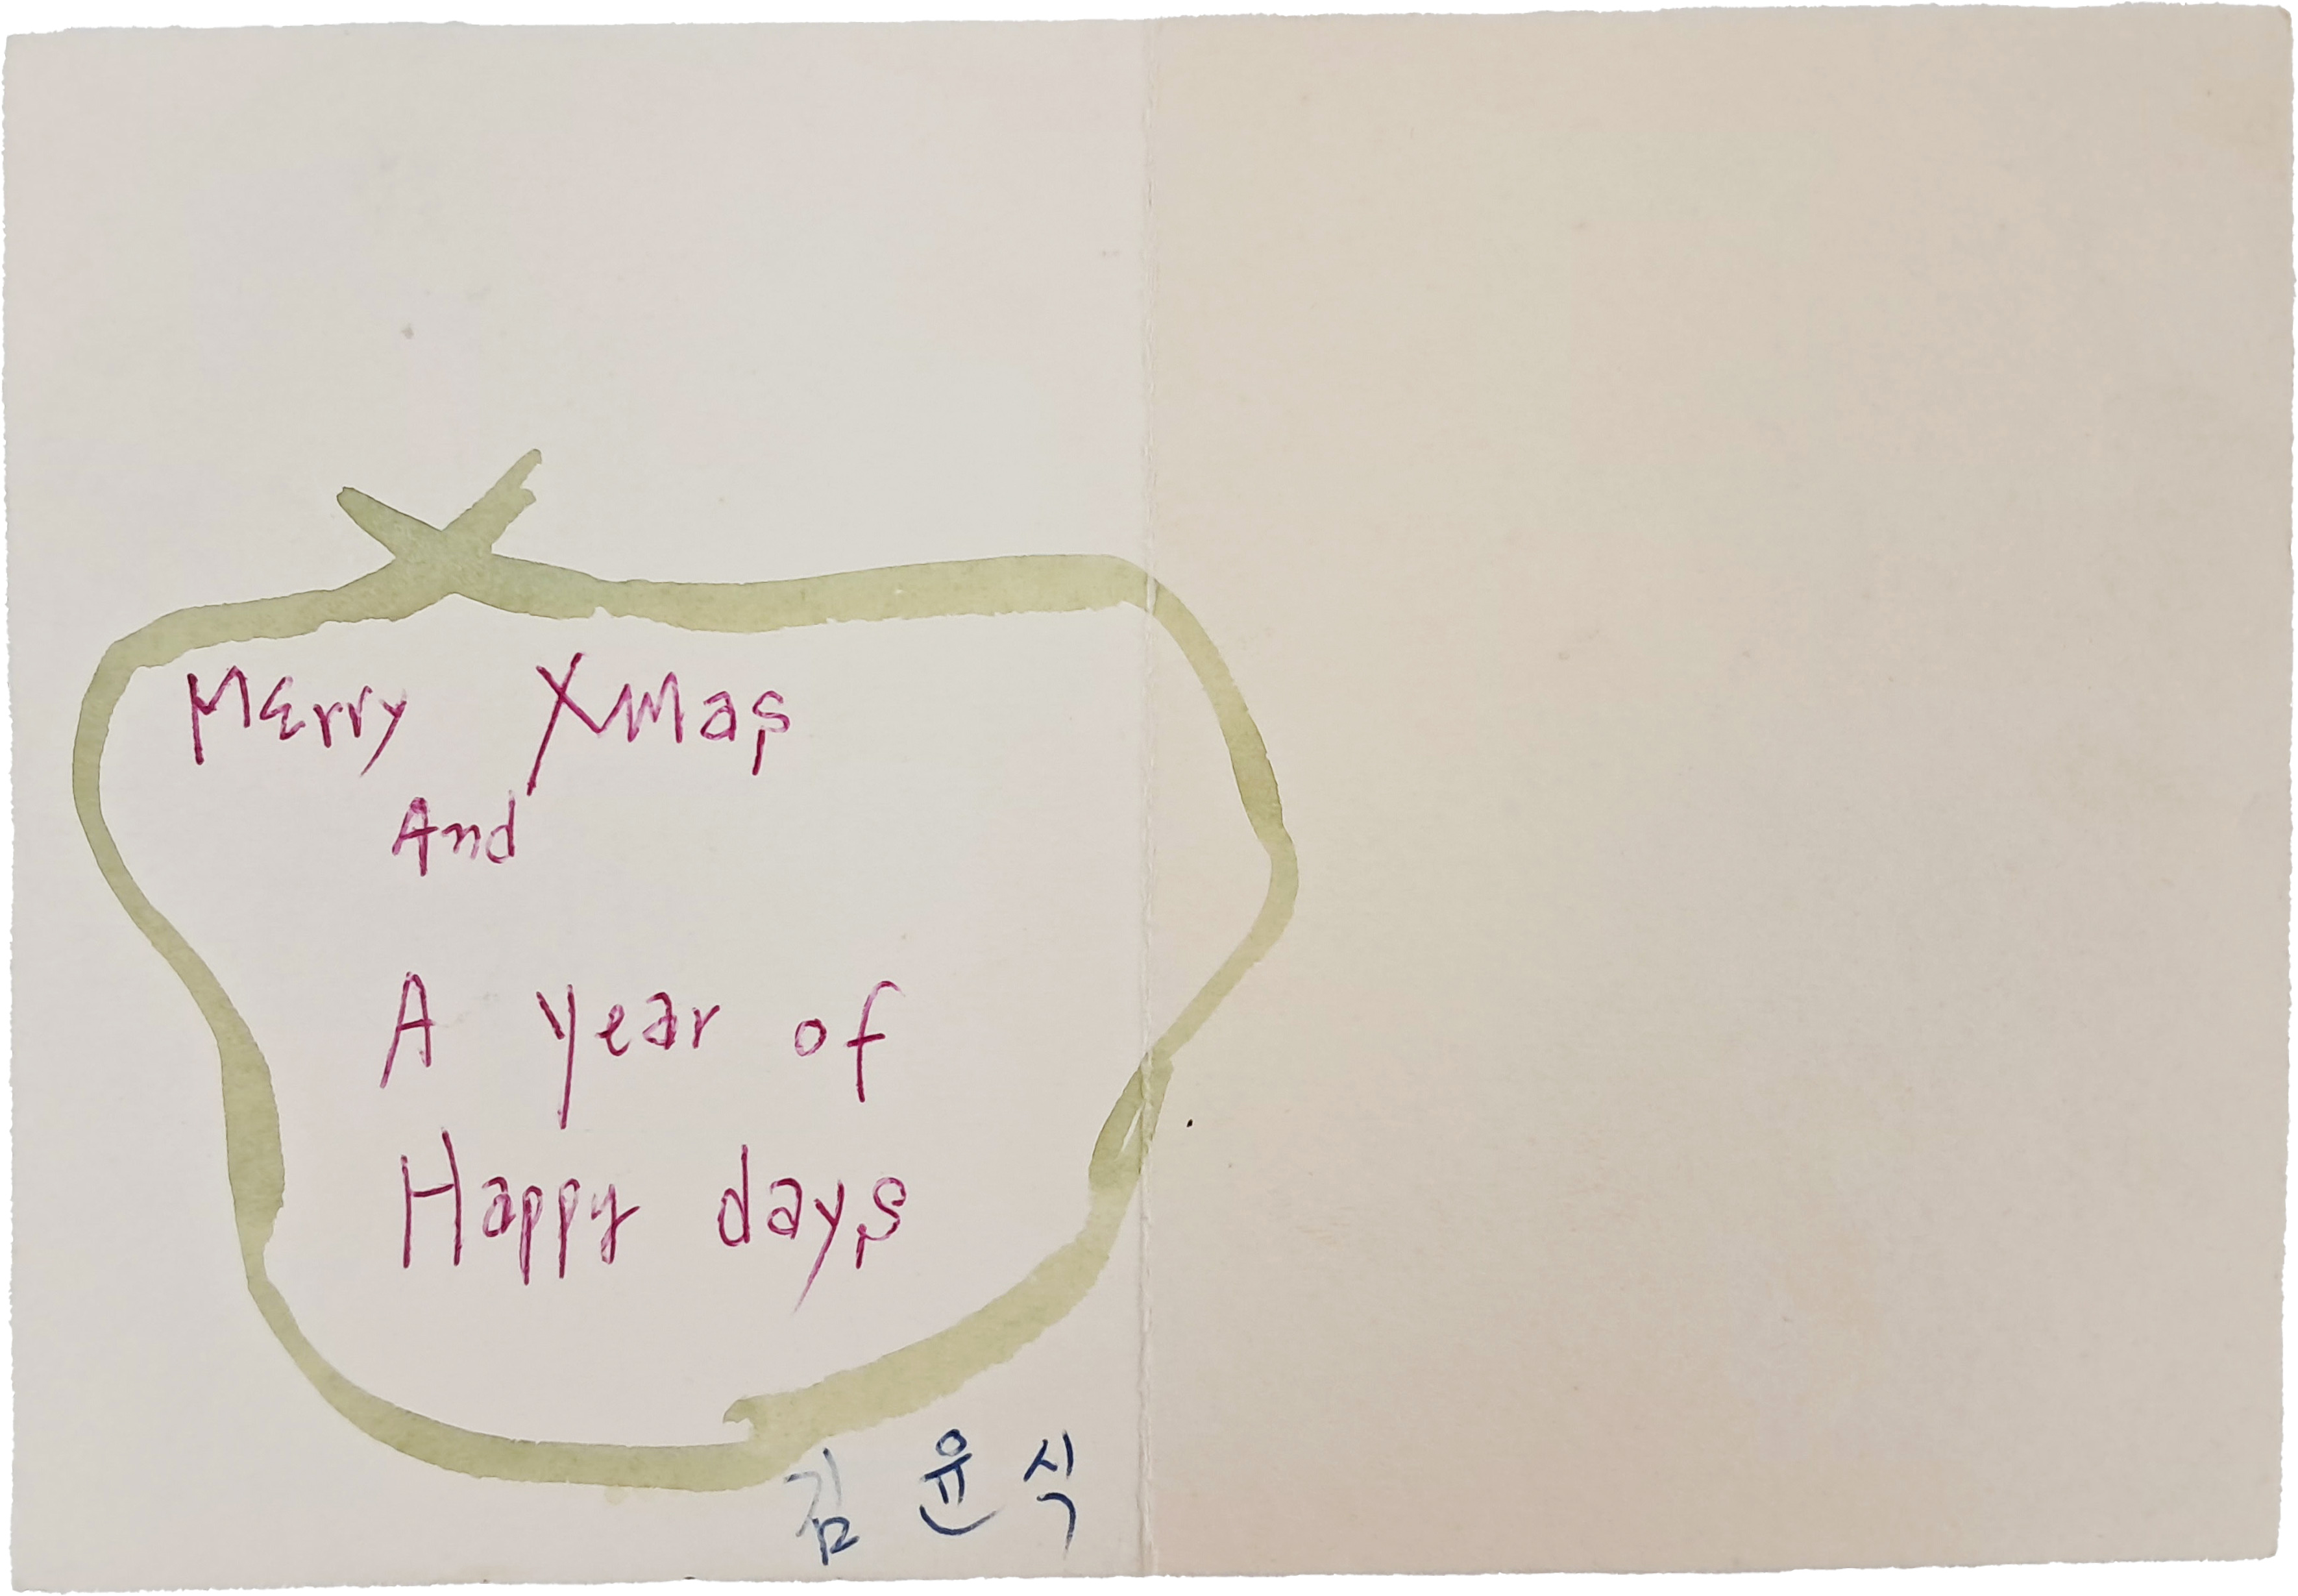 Merry XMas
And
A year of
Happy days
김 윤 식